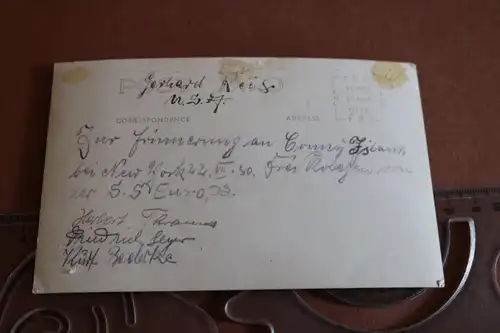 Gerhard Reus
U.S.A.
CORRESPONDENCE ADDRESS
Zur Erinnerung an Conny Island
bei New York 22. VI. 30. Drei Kolegen von
der S.S. Europa.
Herbert
Friedrich Geyer
Kurt